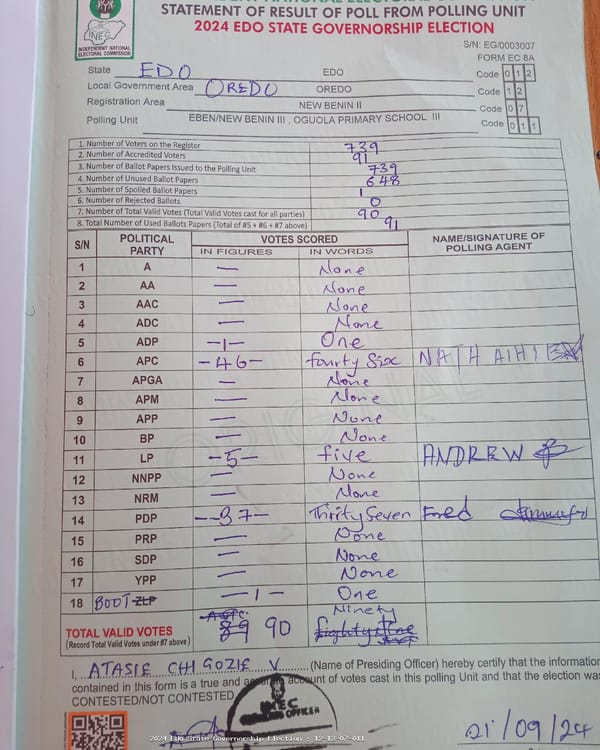 STATEMENT OF RESULT OF POLL FROM POLLING UNIT
2024 EDO STATE GOVERNORSHIP ELECTION
INEC
INDEPENDENT NATIONAL ELECTORAL COMMISSION
S/N: EG/0003007
FORM EC 8A
State EDO EDO Code 0 1 2
Local Government Area OREDO OREDO Code 1 2
Registration Area NEW BENIN II Code 0 7
Polling Unit EBEN/NEW BENIN III , OGUOLA PRIMARY SCHOOL III Code 0 1 1
1. Number of Voters on the Register 739
2. Number of Accredited Voters 91
3. Number of Ballot Papers Issued to the Polling Unit 739
4. Number of Unused Ballot Papers 648
5. Number of Spoiled Ballot Papers 1
6. Number of Rejected Ballots 0
7. Number of Total Valid Votes (Total Valid Votes cast for all parties) 90
8. Total Number of Used Ballots Papers (Total of #5 + #6 + #7 above) 91
S/N POLITICAL PARTY VOTES SCORED NAME/SIGNATURE OF POLLING AGENT
IN FIGURES IN WORDS
1 A — None
2 AA — None
3 AAC — None
4 ADC — None
5 ADP -1- One
6 APC -46- Fourty Six NATH AIHI
7 APGA — None
8 APM — None
9 APP — None
10 BP — None
11 LP -5- five ANDREW
12 NNPP — None
13 NRM — None
14 PDP -37- Thrity Seven Fred
15 PRP — None
16 SDP — None
17 YPP — None
18 BOOT ZLP -1- One
TOTAL VALID VOTES 89 90 Ninety
(Record Total Valid Votes under #7 above)
I, ATASIE CHIGOZIE V. (Name of Presiding Officer) hereby certify that the information
contained in this form is a true and account of votes cast in this polling Unit and that the election was
CONTESTED/NOT CONTESTED
INEC
OFFICER
21/09/24
2024 Edo State Governorship Election : 12-12-07-011